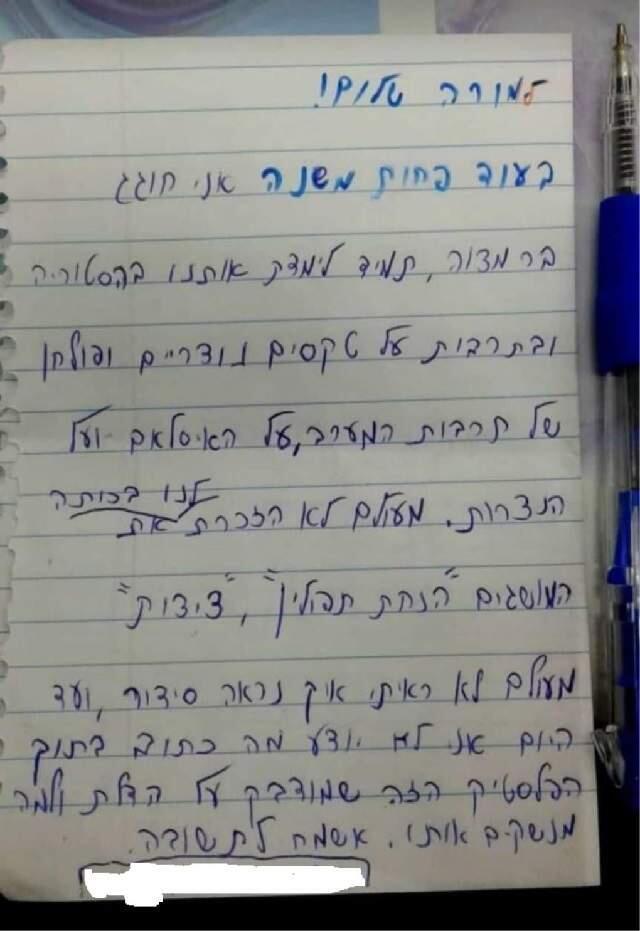 למורה שלום!
בעוד פחות משנה אני חוגג
בר מצווה, תמיד לימדת אותנו בהסטוריה
ובתרבות על טקסים נוצריים ופולחן
של תרבות המערב, על האיסלאם ועל
לנו בכותה
הנצרות. מעולם לא הזכרת את
המושגים "הנחת תפילין", "ציצית"
מעולם לא ראיתי איך נראה סידור, ועד
היום אני לא יודע מה כתוב בתוך
הפלסטיק הזה שמודבק על הדלת ולמה
מנשקים אותו. אשמח לתשובה.